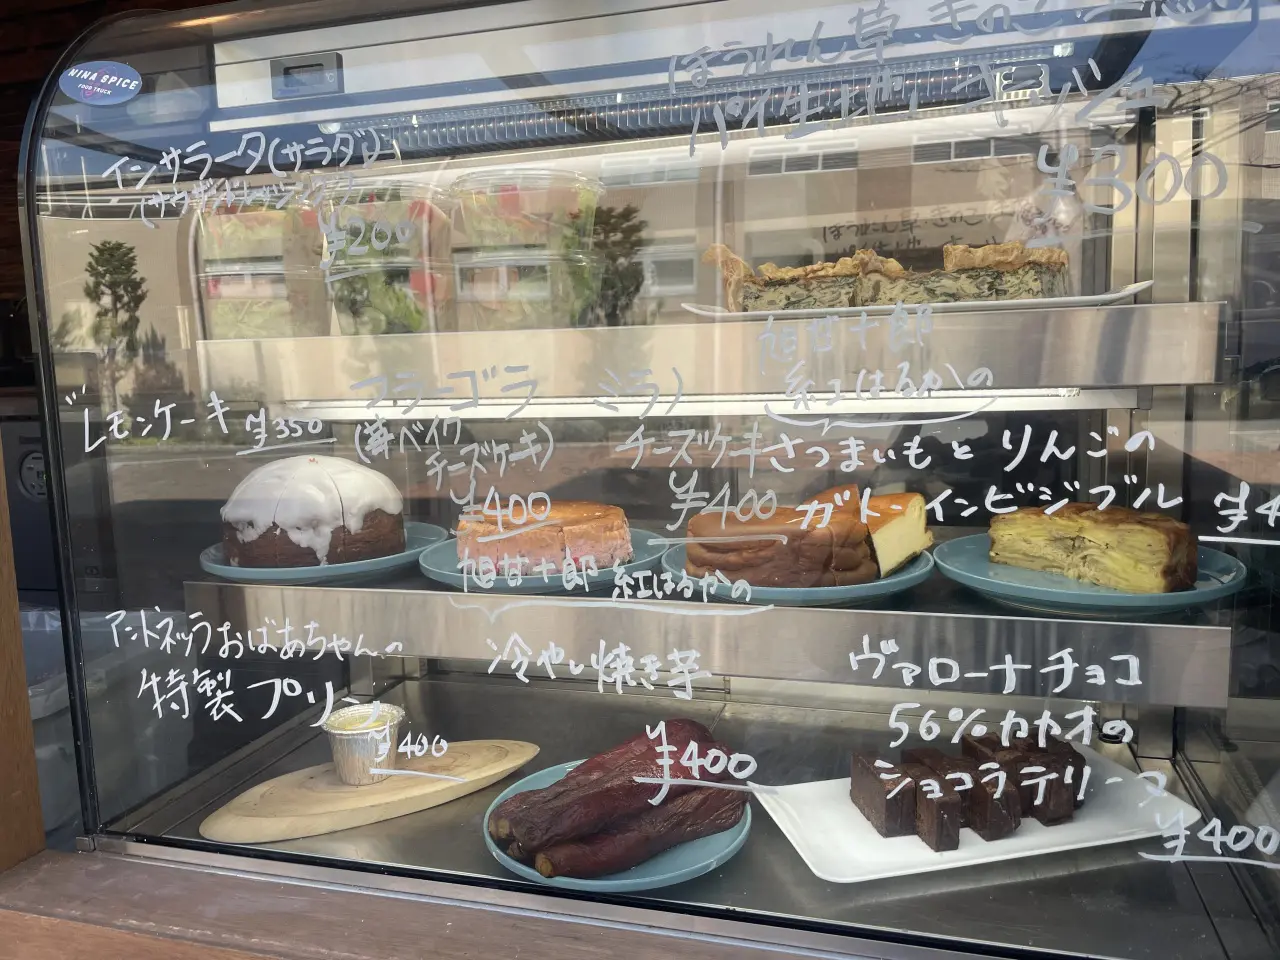 NINA SPICE
FOOD TRUCK
ほうれん草、きのこ
パイ生地、キッシュ
¥300
インサラータ(サラダ)
¥200
レモンケーキ ¥350
フラーゴラ
チーズケーキ)
¥400
ミラノ
チーズケーキ
¥400
旭甘十郎
紅はるかの
さつまいもとりんごの
ガトーインビジブル
アントネッラおばあちゃんの
特製プリン
¥400
旭甘十郎 紅はるかの
冷やし焼き芋
¥400
ヴァローナチョコ
56%カカオの
ショコラテリーヌ
¥400